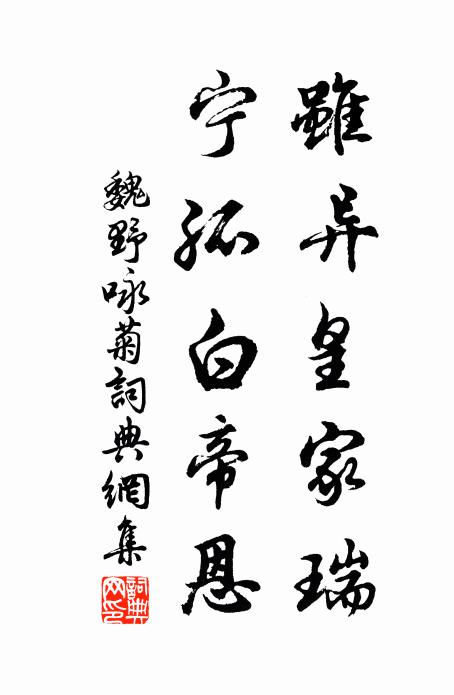 雖异皇家瑞
宁孤白帝恩
魏野咏菊詞典網集
詞典网印